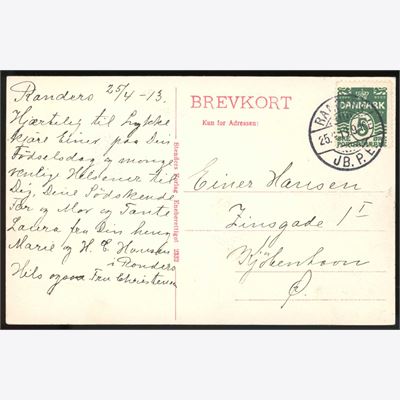 Randers 25/4-13.
Hjærtelig til Lykke
kjære Einer paa Din
Fødselsdag og mange
venlig Hilsener til
Dig, Dine Sødskende
Far og Mor og Tante
Laura fra Din
Marie og H. C. Hansen
i Randers
Hils ogsaa Fru Christensen
Stenders Forlag Eneberettiget
BREVKORT
Kun for Adressen:
DANMARK
5
25.
JB.P.E
Einer Hansen
Zinsgade 1 I
Kjøbenhavn
Ø.